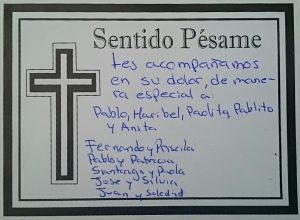 Sentido Pésame
Les acompañamos
en su dolor, de mane-
ra especial a:
Pablo, Maribel, Paolita, Pablito
y Anita
Fernando y Priscila
Pablo y Patricia
Santiago y Paola
Jose y Silvia
Juan y Soledad